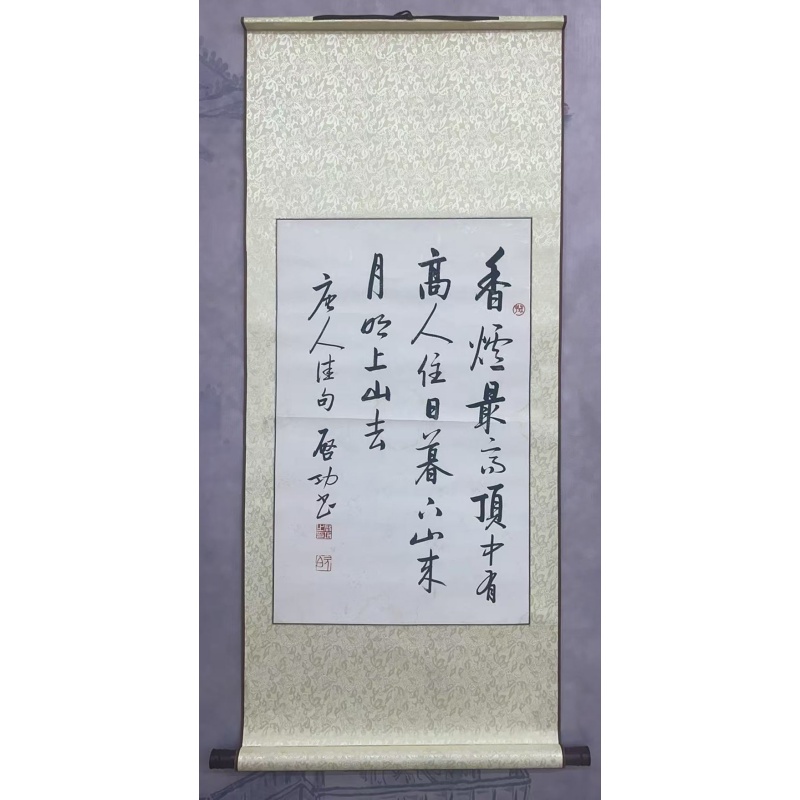 香爐最高頂中有
高人住日暮下山来
月明上山去
唐人佳句 启功书